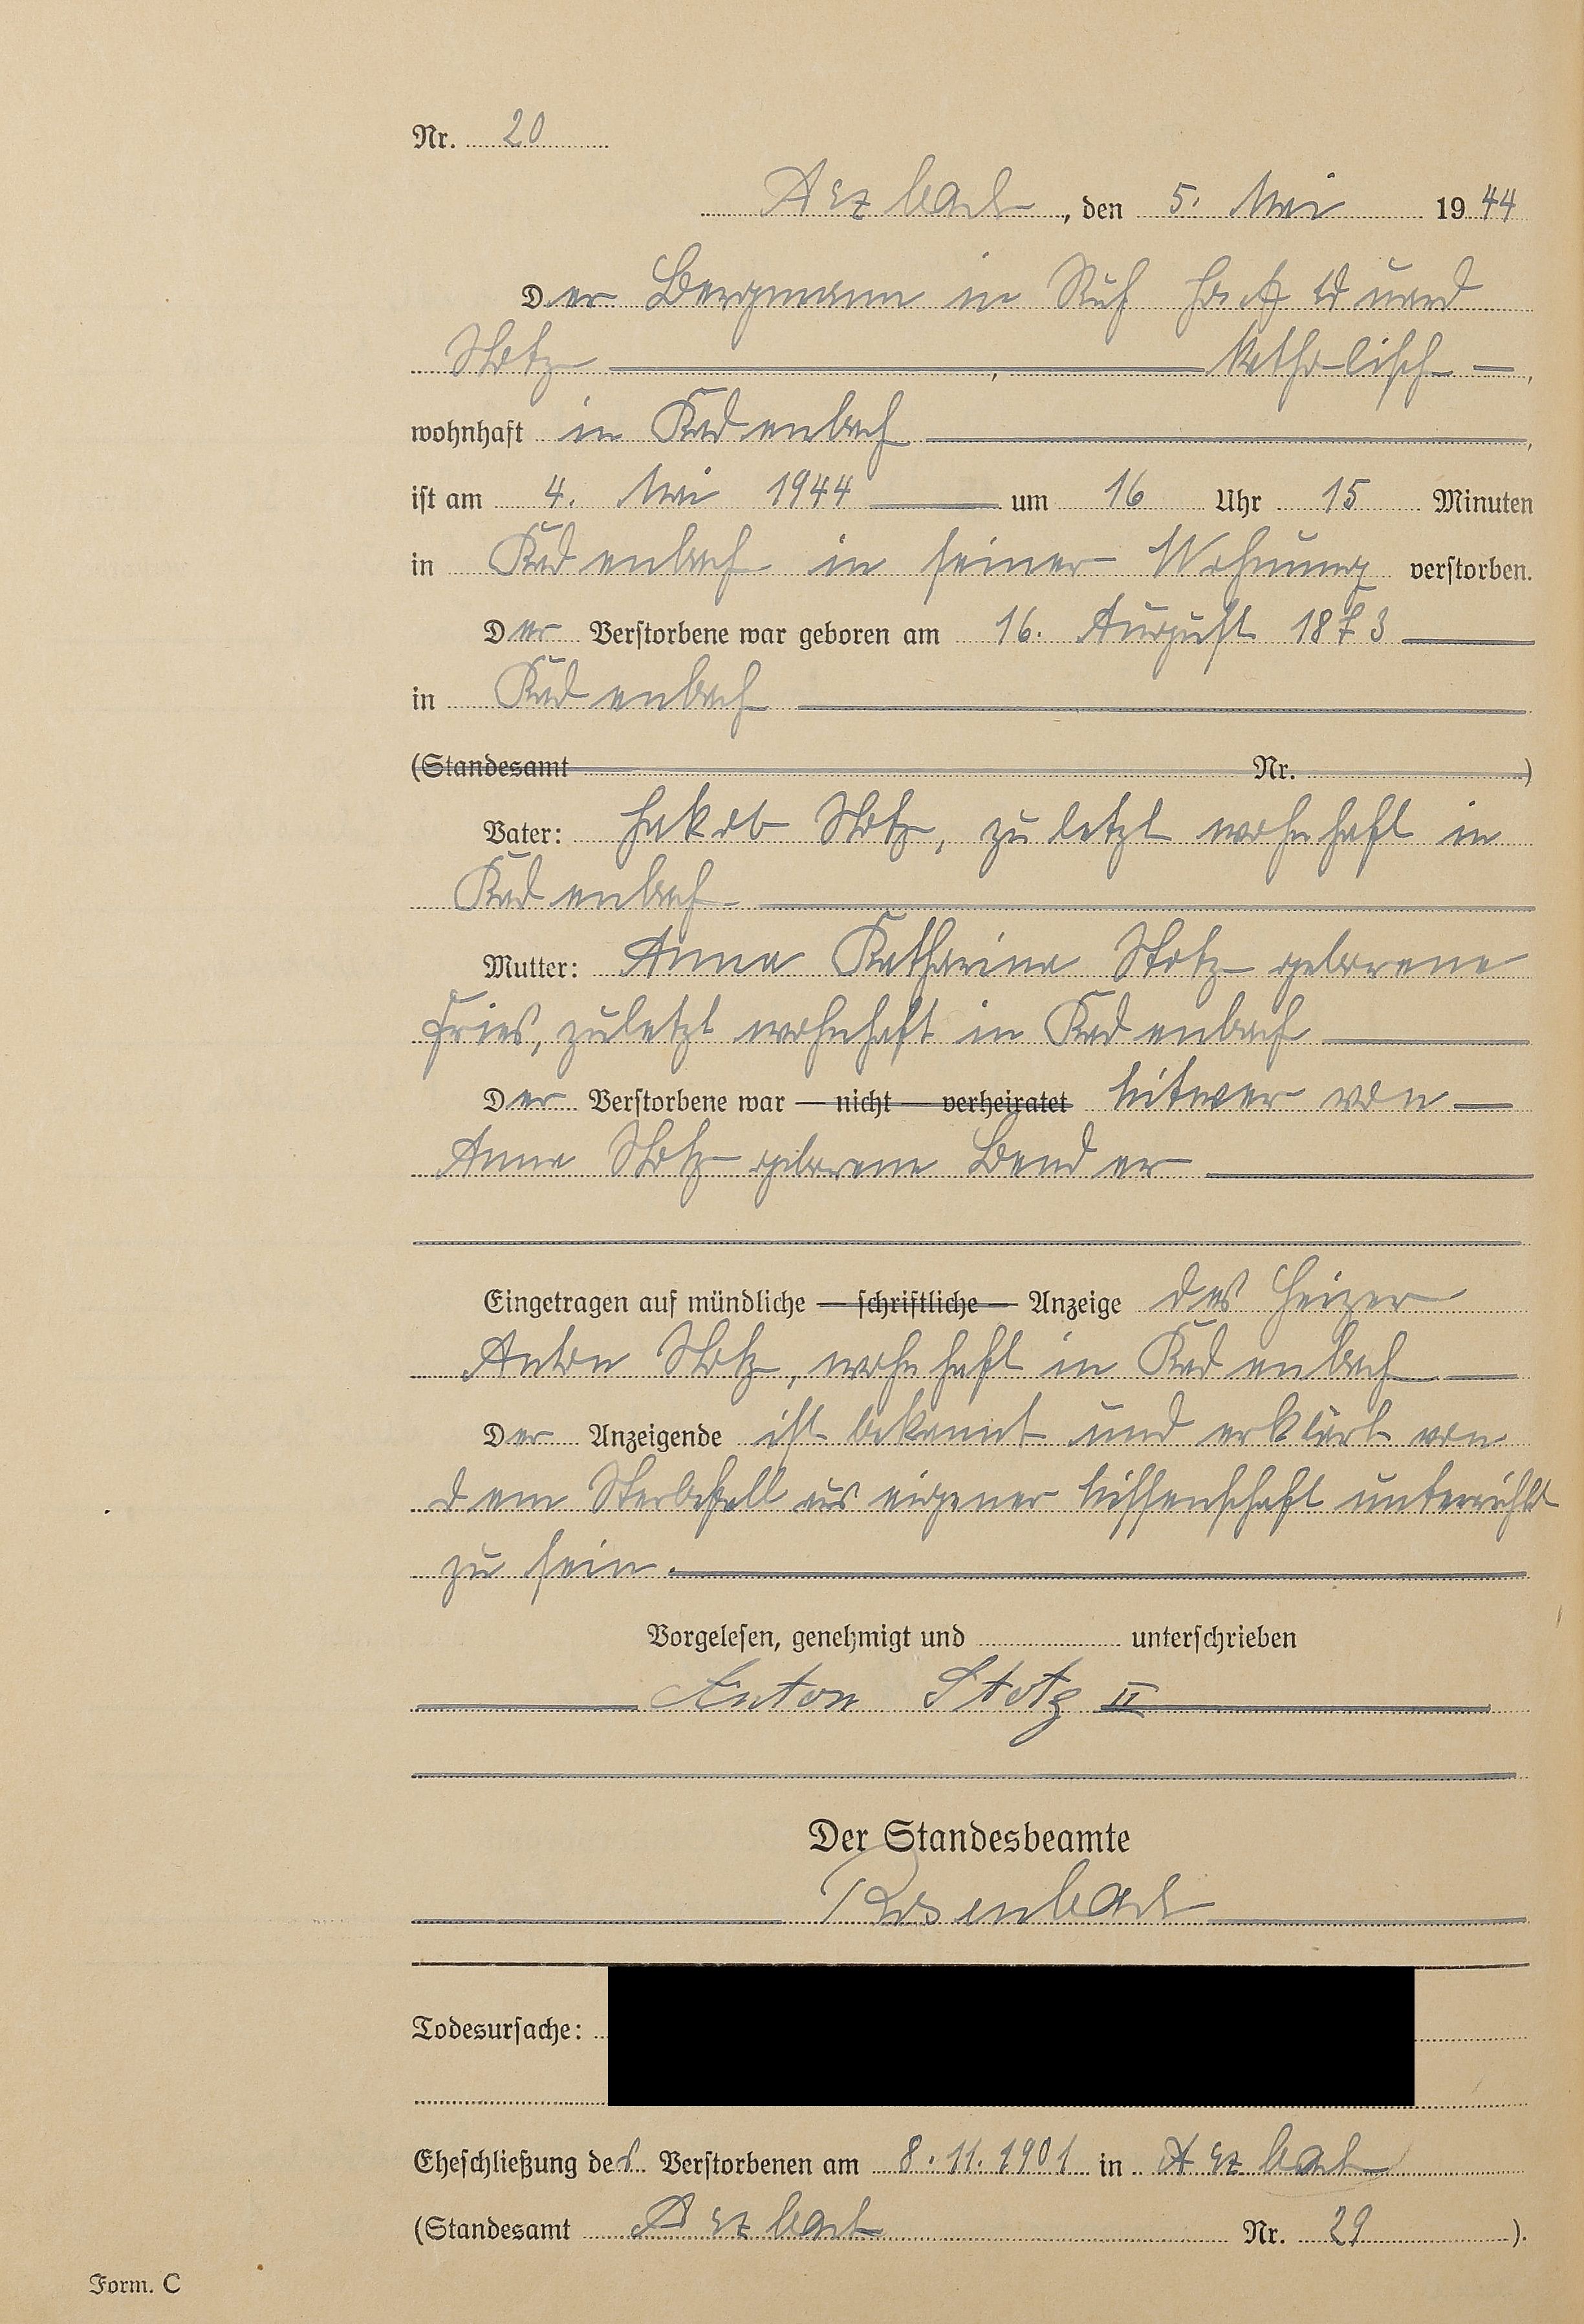 Nr. 20
Arzbach, den 5. Mai 1944
Der Bergmann in Ruh Eduard
Stotz, katholisch,
wohnhaft in Kadenbach,
ist am 4. Mai 1944 um 16 Uhr 15 Minuten
in Kadenbach in seiner Wohnung verstorben.
Der Verstorbene war geboren am 16. August 1873
in Kadenbach
(Standesamt Nr. )
Vater: Jakob Stotz, zuletzt wohnhaft in
Kadenbach
Mutter: Anna Katharina Stotz geborene
Fries, zuletzt wohnhaft in Kadenbach
Der Verstorbene war — nicht — verheiratet Witwer von
Anna Stotz geborene Bender
Eingetragen auf mündliche — schriftliche — Anzeige des Heizer
Anton Stotz, wohnhaft in Kadenbach
Der Anzeigende ist bekannt und erklärt von
dem Sterbefall aus eigener Wissenschaft unterrichtet
zu sein.
Vorgelesen, genehmigt und unterschrieben
Anton Stotz II
Der Standesbeamte
Rosenbach
Todesursache:
Eheschließung des Verstorbenen am 8.11.1901 in Arzbach
(Standesamt Arzbach Nr. 29 ).
Form. C